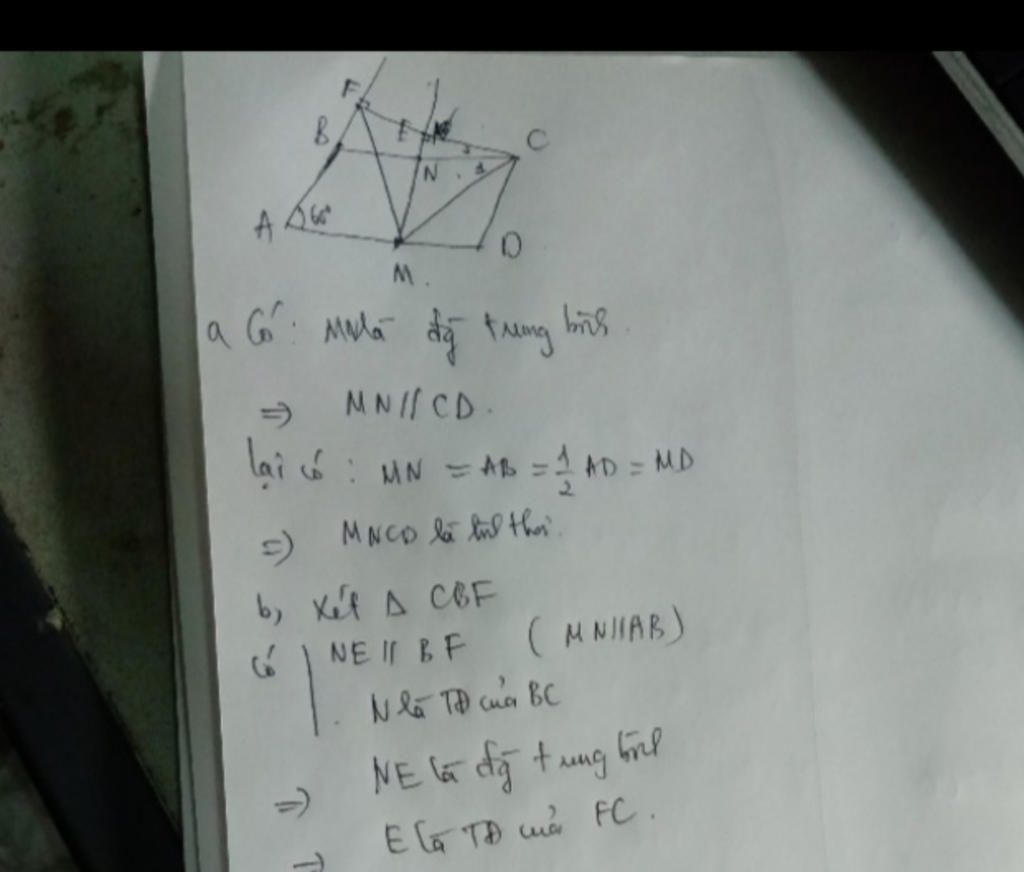 F
B E C
N
A 60°
D
M
a Có: MN là đg trung bình.
=> MN // CD.
lại có: MN = AB = 1/2 AD = MD
=> MNCD là hình thoi.
b, Xét Δ CBF
Có NE // BF (MN//AB)
N là TĐ của BC
=> NE là đg trung bình
=> E là TĐ của FC.